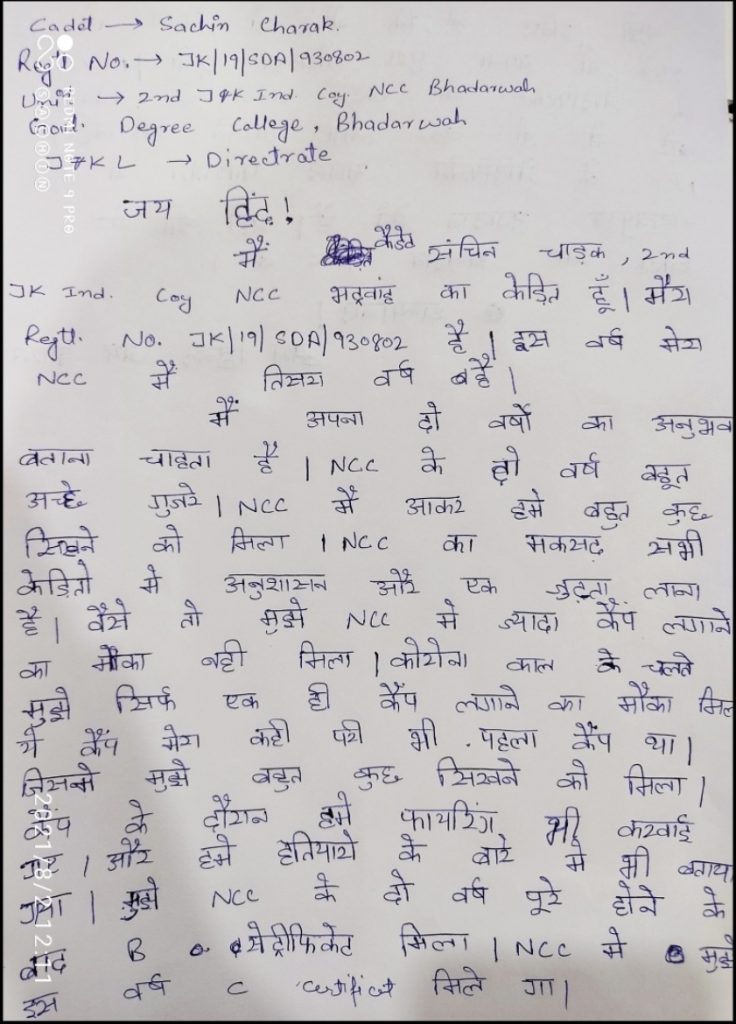 Cadet → Sachin Charak.
Regtl No. → JK/19/SDA/930802
Unit → 2nd J&K Ind. Coy NCC Bhadarwah
Govt. Degree College, Bhadarwah
J&K L → Directrate
जय हिंद!
मैं कैडेट संचिन चाड़क, 2nd
JK Ind. Coy NCC भद्रवाह का केड़ित हूँ। मैरा
Regtl. No. JK/19/SDA/930802 है। इस वर्ष मेरा
NCC में तिसरा वर्ष है।
मैं अपना दो वर्षो का अनुभव
बताना चाहता है। NCC के दो वर्ष बहूत
अच्छे गुजरे। NCC मैं आकर हमे बहुत कुछ
सिखने को मिला। NCC का मकसद सभी
केड़ितो मे अनुशासन और एक जुटता लाना
है। वैसे तो मुझे NCC मे ज्यादा कैंप लगाने
का मौका नही मिला। कोरोना काल के चलते
मुझे सिर्फ एक ही कैंप लगाने का मौका मिल
ये कैंप मेरा कही परी भी पहला कैंप था।
जिसमे मुझे बहुत कुछ सिखने को मिला।
कैंप के दौरान हमे फायरिंग भी करवाई
गई। और हमे हतियारो के बारे मे भी बताया
गया। मुझे NCC के दो वर्ष पूरे होने के
बाद B सेट्रीफिकेट मिला। NCC मे मुझे
इस वर्ष C certifict मिले गा।
REDMI NOTE 9 PRO
2021/8/21 21:11